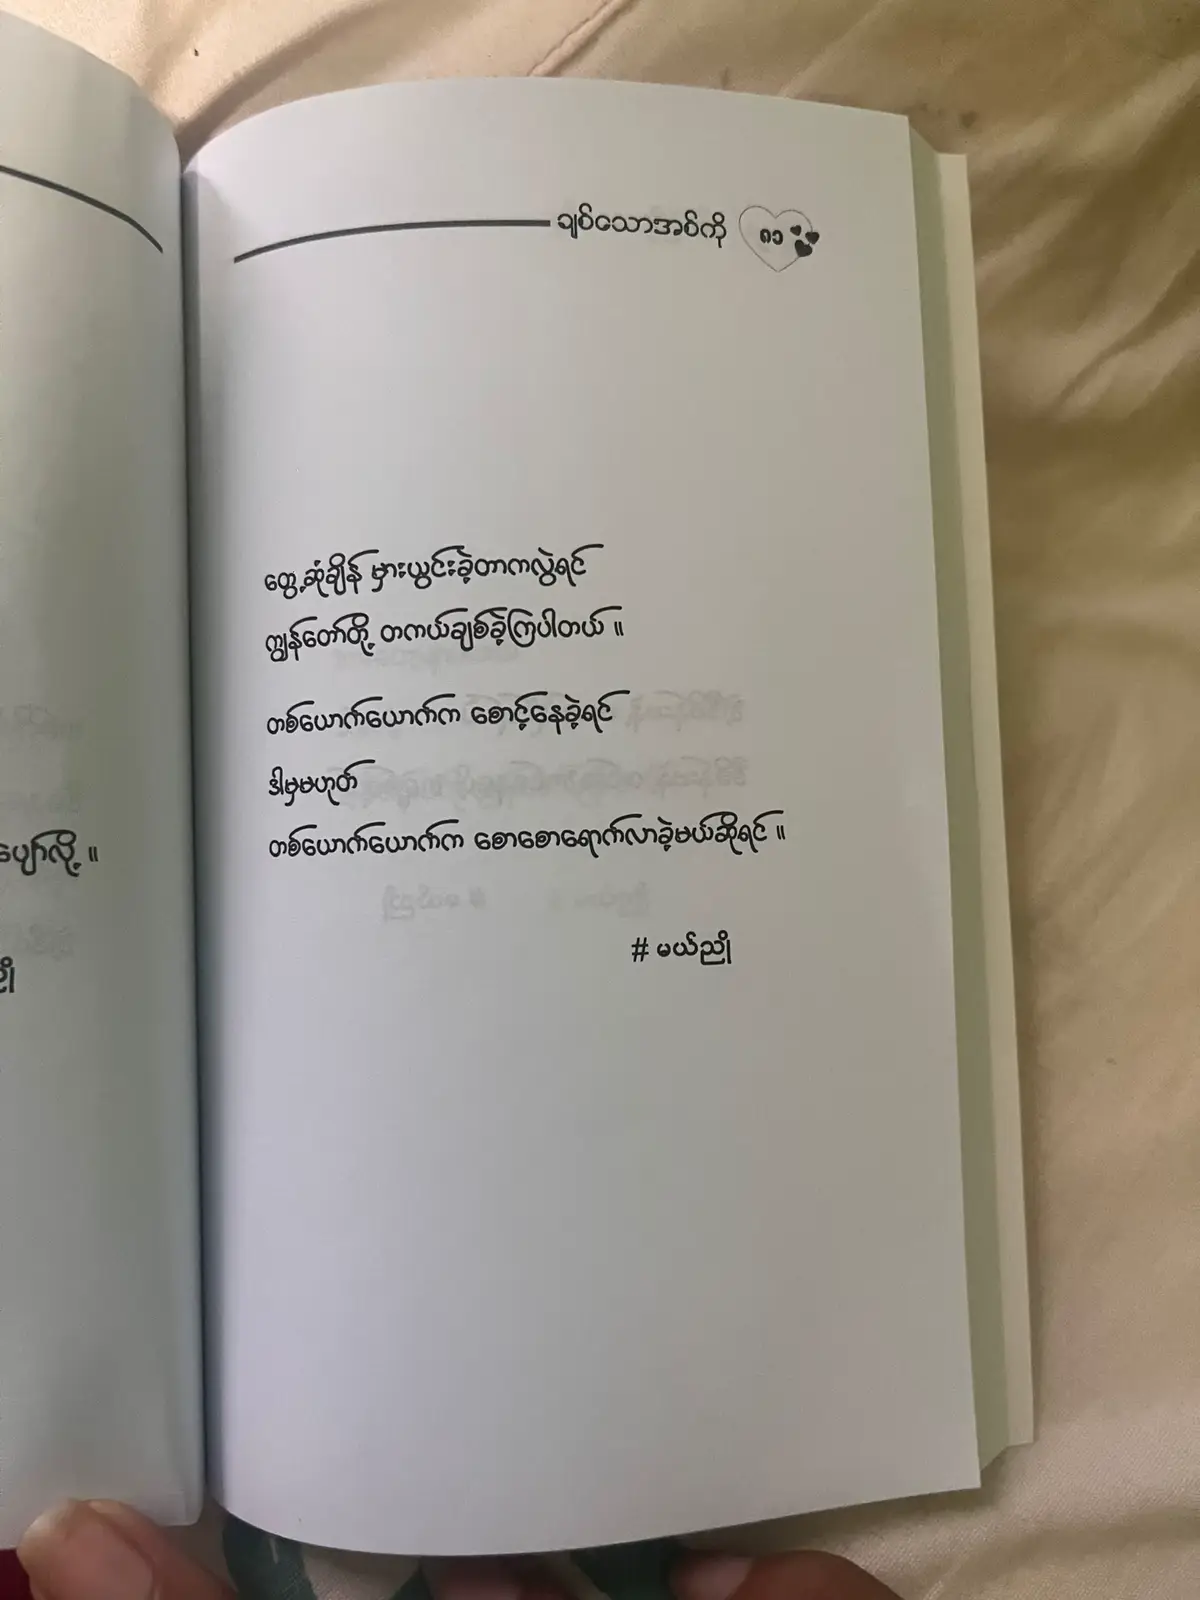 ချစ်သောအစ်ကို ၈၁
တွေ့ဆုံချိန် မှားယွင်းခဲ့တာကလွဲရင်
ကျွန်တော်တို့ တကယ်ချစ်ခဲ့ကြပါတယ် ။
တစ်ယောက်ယောက်က စောင့်နေခဲ့ရင်
ဒါမှမဟုတ်
တစ်ယောက်ယောက်က စောစောရောက်လာခဲ့မယ်ဆိုရင် ။
# မယ်ညို
ပျော်လို့ ။